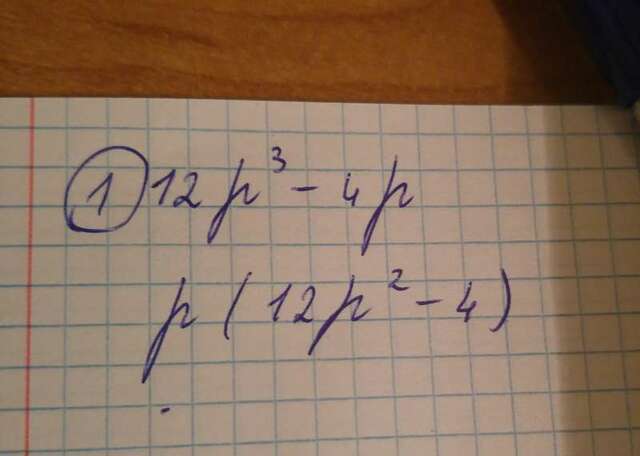 ① 12p³ - 4p
p(12p² - 4)